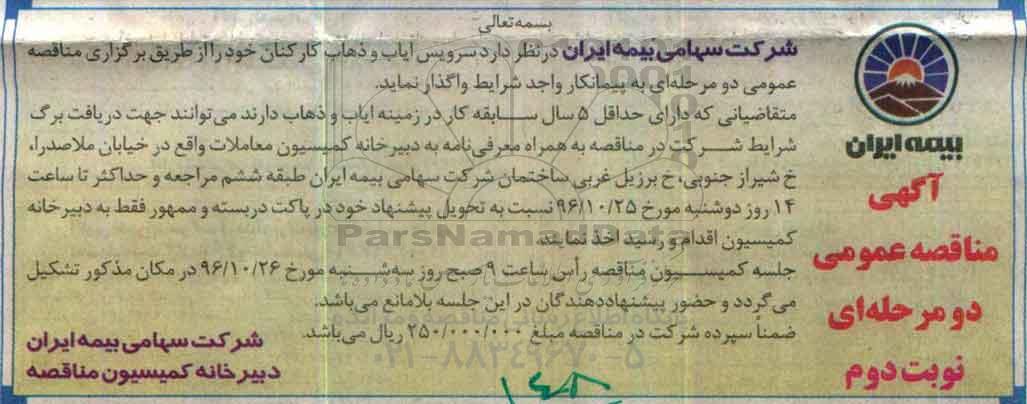 بسمه تعالی
شرکت سهامی بیمه ایران در نظر دارد سرویس ایاب و ذهاب کارکنان خود را از طریق برگزاری مناقصه
عمومی دو مرحله‌ای به پیمانکار واجد شرایط واگذار نماید.
متقاضیانی که دارای حداقل ۵ سال سابقه کار در زمینه ایاب و ذهاب دارند می‌توانند جهت دریافت برگ
شرایط شرکت در مناقصه به همراه معرفی‌نامه به دبیرخانه کمیسیون معاملات واقع در خیابان ملاصدرا،
خ شیراز جنوبی، خ برزیل غربی ساختمان شرکت سهامی بیمه ایران طبقه ششم مراجعه و حداکثر تا ساعت
۱۴ روز دوشنبه مورخ ۹۶/۱۰/۲۵ نسبت به تحویل پیشنهاد خود در پاکت دربسته و ممهور فقط به دبیرخانه
کمیسیون اقدام و رسید اخذ نمایند.
جلسه کمیسیون مناقصه رأس ساعت ۹ صبح روز سه‌شنبه مورخ ۹۶/۱۰/۲۶ در مکان مذکور تشکیل
می‌گردد و حضور پیشنهاددهندگان در این جلسه بلامانع می‌باشد.
ضمناً سپرده شرکت در مناقصه مبلغ ۲۵۰/۰۰۰/۰۰۰ ریال می‌باشد.
شرکت سهامی بیمه ایران
دبیرخانه کمیسیون مناقصه
بیمه ایران
آگهی
مناقصه عمومی
دو مرحله‌ای
نوبت دوم
ParsNamadData
۰۲۱-۸۸۳۴۹۶۷۰-۵
۱۴۰۸